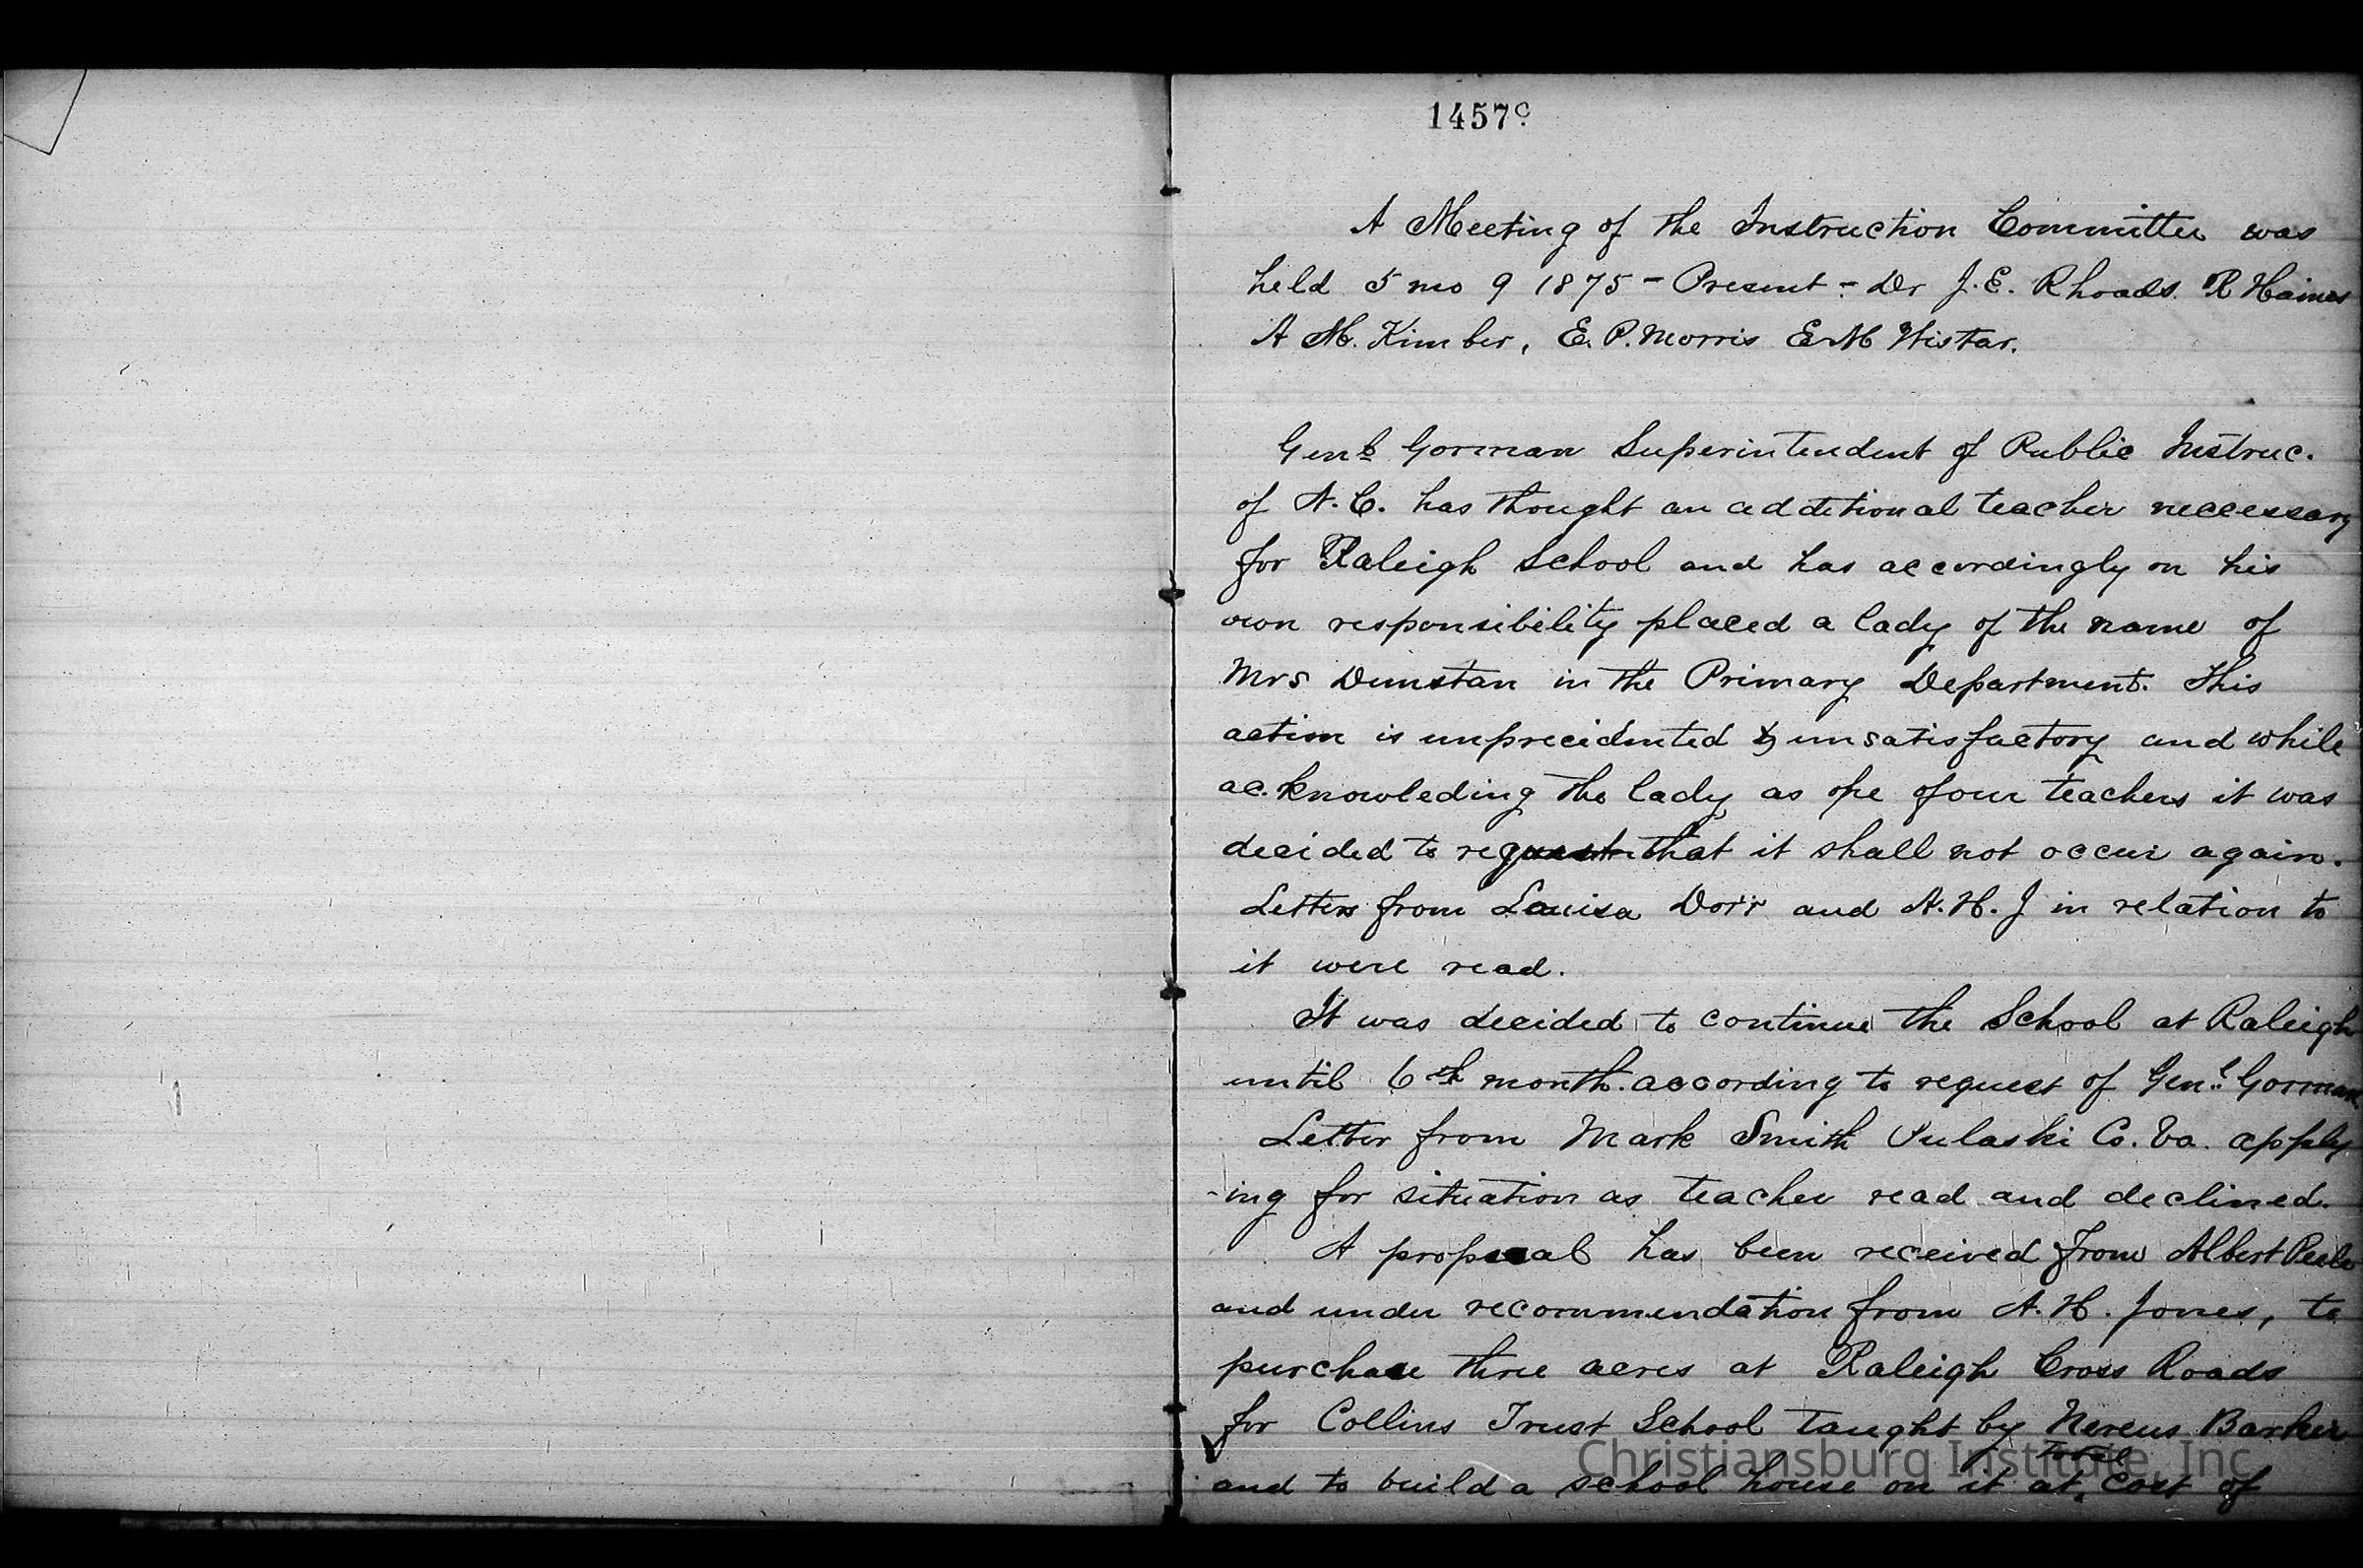 1457c
A Meeting of the Instruction Committee was
held 5 mo 9 1875 - Present - Dr J. E. Rhoads. R Haines
A M. Kimber, E. P. Morris E M Wistar.
Genl Gorman Superintendent of Public Instruc.
of N. C. has thought an additional teacher neccessary
for Raleigh School and has accordingly on his
own responsibility placed a lady of the name of
Mrs Dunstan in the Primary Department. This
action is unprecidented & unsatisfactory and while
acknowleding the lady as one of our teachers it was
decided to request that it shall not occur again.
Letters from Louisa Dorr and A. H. J in relation to
it were read.
It was decided to continue the School at Raleigh
until 6th month according to request of Genl Gorman
Letter from Mark Smith Pulaski Co. Va. apply
-ing for situation as teacher read and declined.
A proposal has been received from Albert Peele
and under recommendation from A. H. Jones, to
purchase three acres at Raleigh Cross Roads
for Collins Trust School taught by Nereus Barker
and to build a school house on it at total cost of
Christiansburg Institute, Inc.